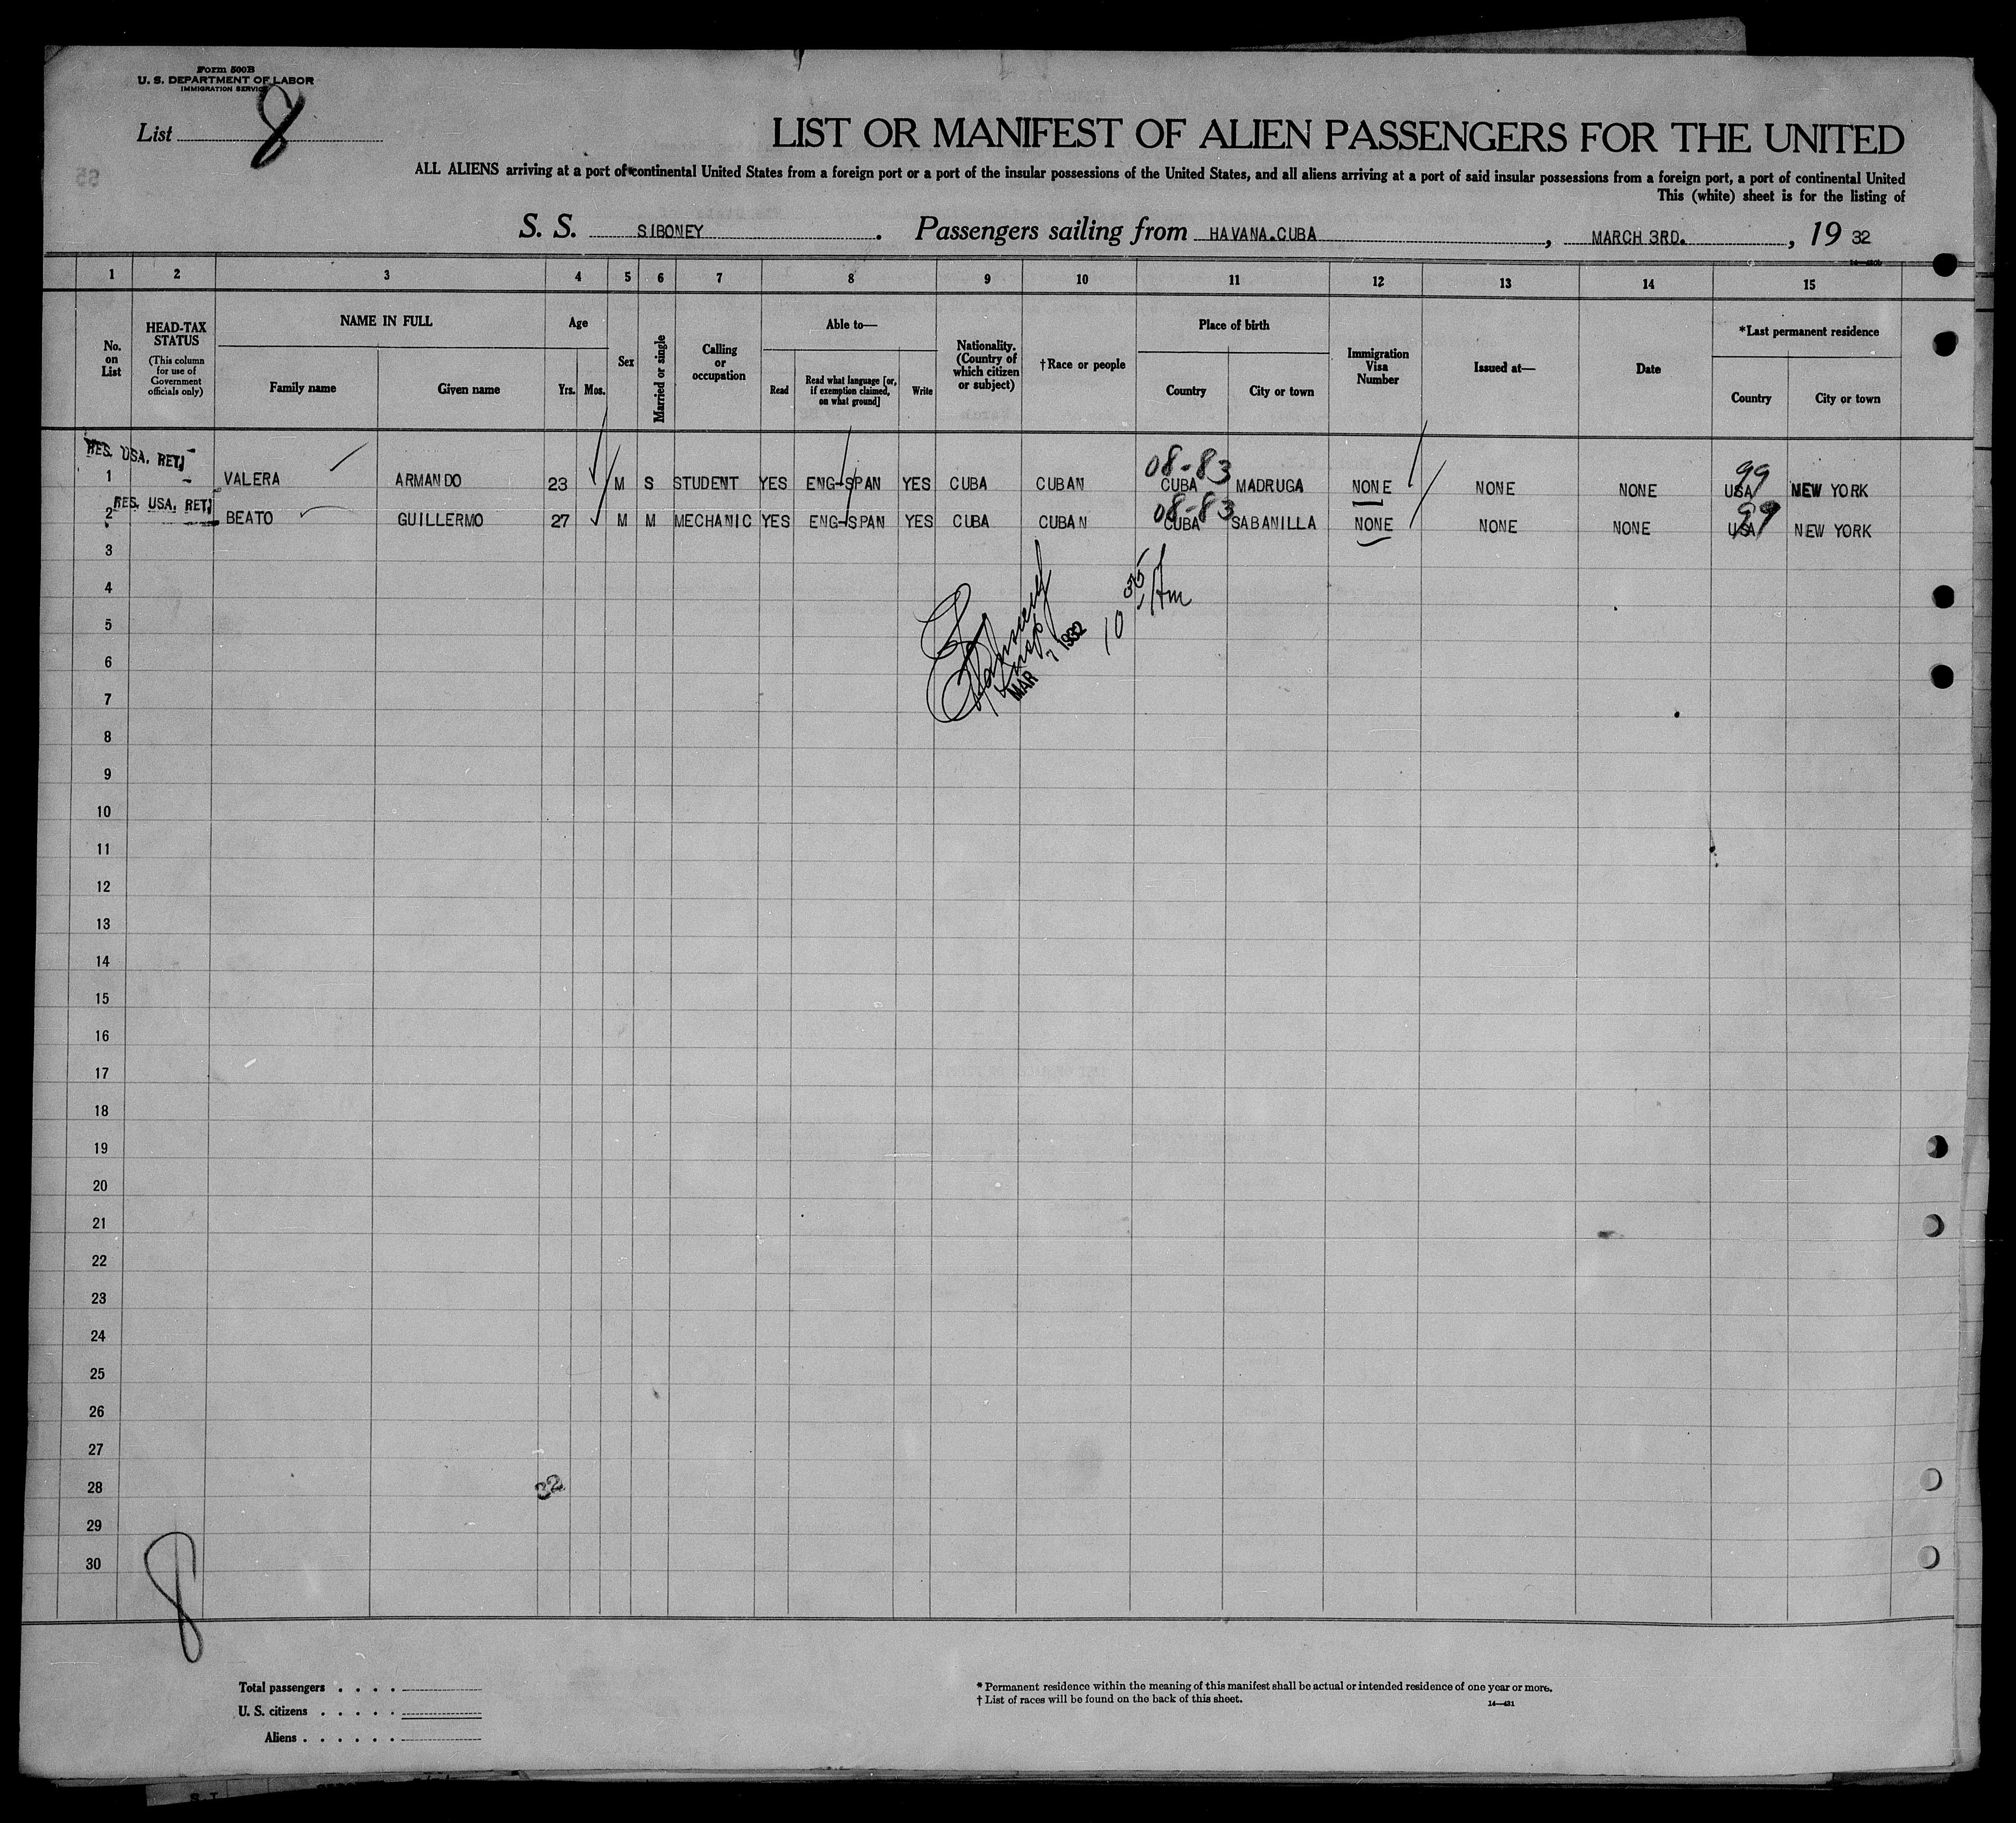 Form 500B
U. S. DEPARTMENT OF LABOR
IMMIGRATION SERVICE
List 8
LIST OR MANIFEST OF ALIEN PASSENGERS FOR THE UNITED
ALL ALIENS arriving at a port of continental United States from a foreign port or a port of the insular possessions of the United States, and all aliens arriving at a port of said insular possessions from a foreign port, a port of continental United
This (white) sheet is for the listing of
S. S. SIBONEY. Passengers sailing from HAVANA.CUBA, MARCH 3RD., 19 32
1 2 3 4 5 6 7 8 9 10 11 12 13 14 15
No. on List
HEAD-TAX STATUS
(This column for use of Government officials only)
NAME IN FULL
Family name
Given name
Age
Yrs. Mos.
Sex
Married or single
Calling or occupation
Able to—
Read
Read what language [or, if exemption claimed, on what ground]
Write
Nationality. (Country of which citizen or subject)
†Race or people
Place of birth
Country
City or town
Immigration Visa Number
Issued at—
Date
*Last permanent residence
Country
City or town
RES. USA. RET.
08-83 99
1 VALERA ARMANDO 23 M S STUDENT YES ENG-SPAN YES CUBA CUBAN CUBA MADRUGA NONE NONE NONE USA NEW YORK
RES. USA. RET.
08-83 99
2 BEATO GUILLERMO 27 M M MECHANIC YES ENG-SPAN YES CUBA CUBAN CUBA SABANILLA NONE NONE NONE USA NEW YORK
3
4
5
6
7
8
9
10
11
12
13
14
15
16
17
18
19
20
21
22
23
24
25
26
27
28
29
30
Insp
MAR 7 1932
10 35 Am
32
8
Total passengers . . . .
U. S. citizens . . . . .
Aliens . . . . . .
* Permanent residence within the meaning of this manifest shall be actual or intended residence of one year or more.
† List of races will be found on the back of this sheet.
14—431